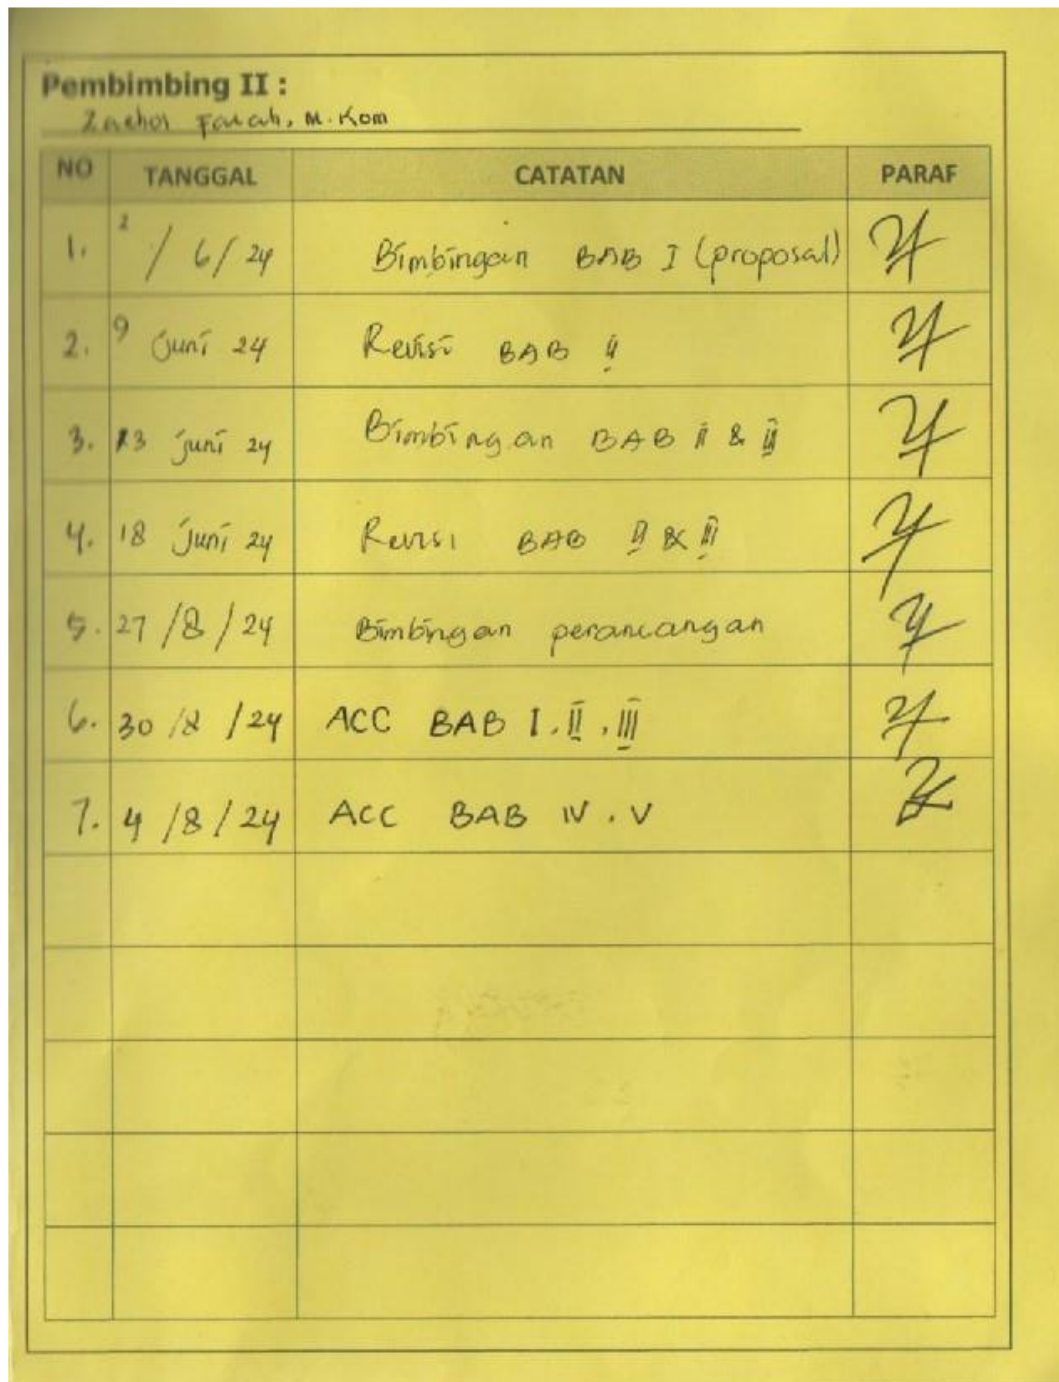 Pembimbing II :
Zaehol Fatah, M. Kom
NO TANGGAL CATATAN PARAF
1. 2 / 6 / 24 Bimbingan BAB I (proposal)
2. 9 juni 24 Revisi BAB II
3. 13 juni 24 Bimbingan BAB II & III
4. 18 juni 24 Revisi BAB II & III
5. 27 / 8 / 24 Bimbingan perancangan
6. 30 / 8 / 24 ACC BAB I . II . III
7. 4 / 8 / 24 ACC BAB IV . V